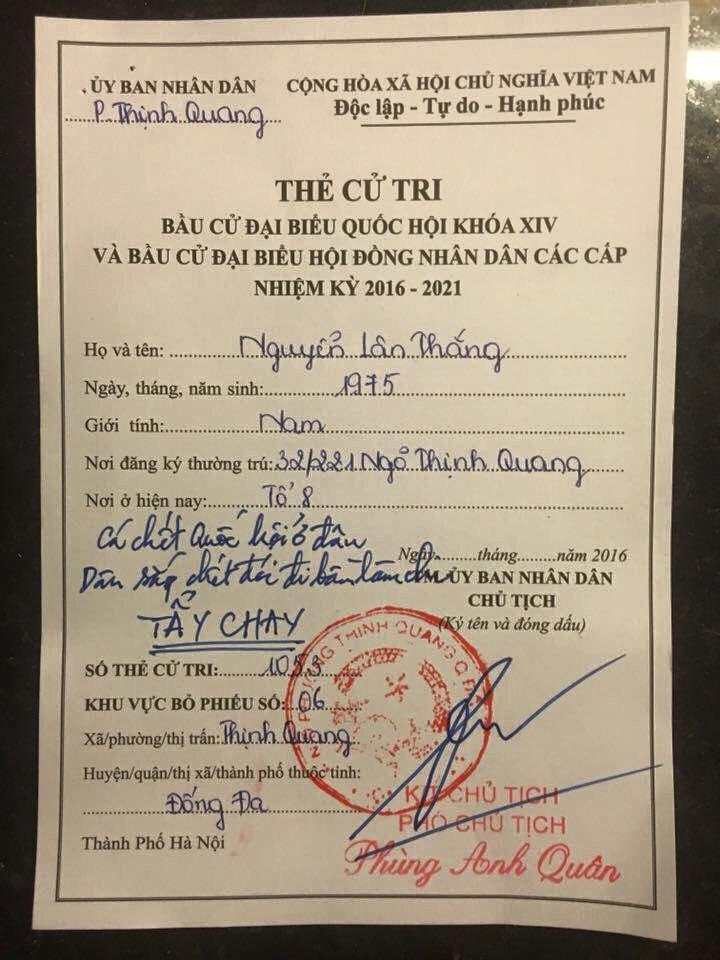 ỦY BAN NHÂN DÂN
P. Thịnh Quang
CỘNG HÒA XÃ HỘI CHỦ NGHĨA VIỆT NAM
Độc lập - Tự do - Hạnh phúc
THẺ CỬ TRI
BẦU CỬ ĐẠI BIỂU QUỐC HỘI KHÓA XIV
VÀ BẦU CỬ ĐẠI BIỂU HỘI ĐỒNG NHÂN DÂN CÁC CẤP
NHIỆM KỲ 2016 - 2021
Họ và tên: Nguyễn Lân Thắng
Ngày, tháng, năm sinh: 1975
Giới tính: Nam
Nơi đăng ký thường trú: 32/221 Ngõ Thịnh Quang
Nơi ở hiện nay: Tổ 8
Cá chết Quốc hội ở đâu
Dân sắp chết đói đi bầu làm chi
TẨY CHAY
Ngày.........tháng........năm 2016
TM. ỦY BAN NHÂN DÂN
CHỦ TỊCH
(Ký tên và đóng dấu)
SỐ THẺ CỬ TRI: 1053
KHU VỰC BỎ PHIẾU SỐ: 06
Xã/phường/thị trấn: Thịnh Quang
Huyện/quận/thị xã/thành phố thuộc tỉnh:
Đống Đa
Thành Phố Hà Nội
THỊNH QUANG
KT. CHỦ TỊCH
PHÓ CHỦ TỊCH
Phùng Anh Quân